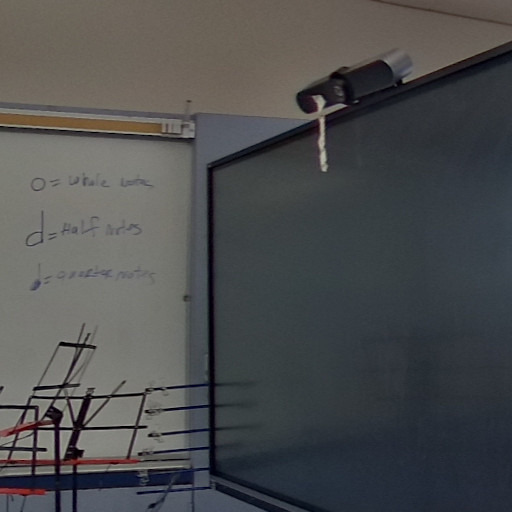 o = whole notes
d = Half notes
d = quarter notes